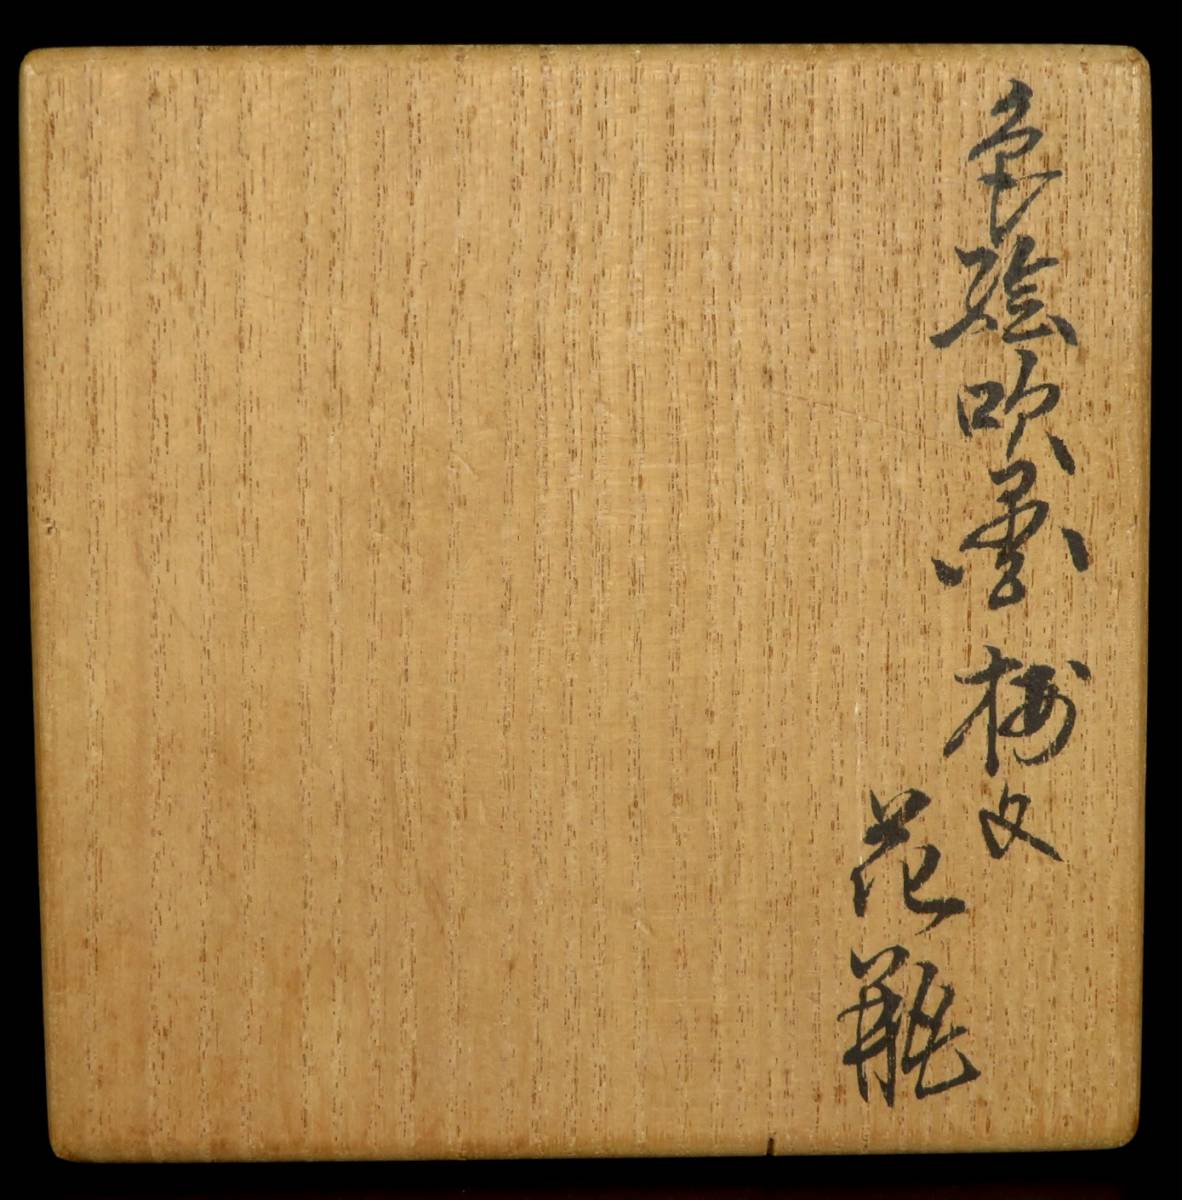 色絵吹墨梅文
花瓶